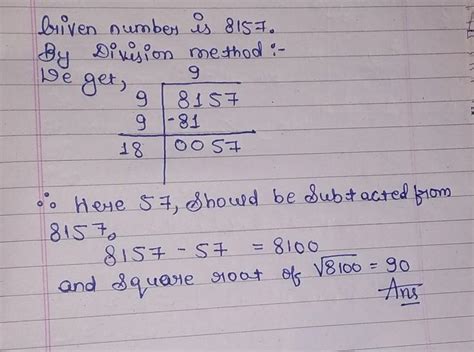 Given number is 8157.
By Division method :-
We get,
9
9 8157
9 -81
18 0057
∴ Here 57, should be subtacted from
8157.
8157 - 57 = 8100
and square root of √8100 = 90
Ans